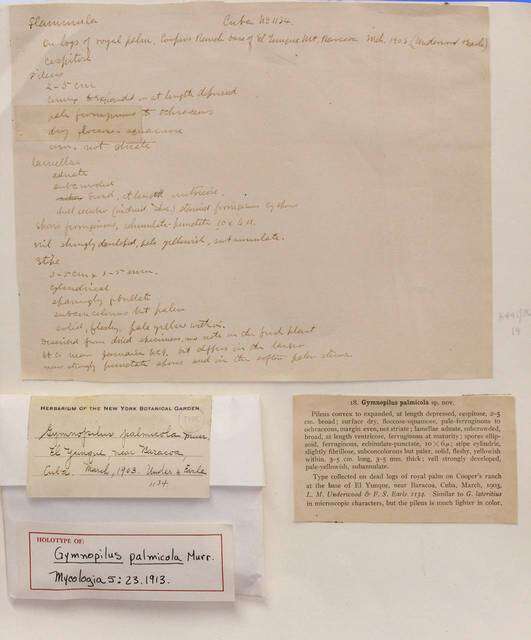 Flammula Cuba No 1134
on logs of royal palm, Coopers Ranch base of El Yunque Mt, Baracoa Mch 1903 (Underwood & Earle)
cespitose
Pileus
2-5 cm
convex to expanded or at length depressed
pale ferruginous to ochraceous
dry floccose-squamose
mar. not striate
Lamellae
adnate
subcrowded
broad, at length ventricose
ferruginous
spores ferruginous, echinulate-punctate 10 x 6 µ.
veil strongly developed, pale yellowish, subannulate.
Stipe
3-5 cm x 3-5 mm.
cylindrical
sparingly fibrillose
subconcolorous but paler
solid, fleshy, pale yellow within.
Described from dried specimens, no note on the fresh plant
but differs in the
more strongly punctate spores and in the paler
HERBARIUM OF THE NEW YORK BOTANICAL GARDEN
Gymnopilus palmicola Murr.
El Yunque near Baracoa,
Cuba. March, 1903. Underw & Earle
1134
HOLOTYPE OF:
Gymnopilus palmicola Murr.
Mycologia 5: 23. 1913.
18. Gymnopilus palmicola sp. nov.
Pileus convex to expanded, at length depressed, cespitose, 2-5
cm. broad; surface dry, floccose-squamose, pale-ferruginous to
ochraceous, margin even, not striate; lamellae adnate, subcrowded,
broad, at length ventricose, ferruginous at maturity; spores ellip-
soid, ferruginous, echinulate-punctate, 10 × 6 µ; stipe cylindric,
slightly fibrillose, subconcolorous but paler, solid, fleshy, yellowish
within, 3-5 cm. long, 3-5 mm. thick; veil strongly developed,
pale-yellowish, subannulate.
Type collected on dead logs of royal palm on Cooper's ranch
at the base of El Yunque, near Baracoa, Cuba, March, 1903,
L. M. Underwood & F. S. Earle 1134. Similar to G. lateritius
in microscopic characters, but the pileus is much lighter in color.